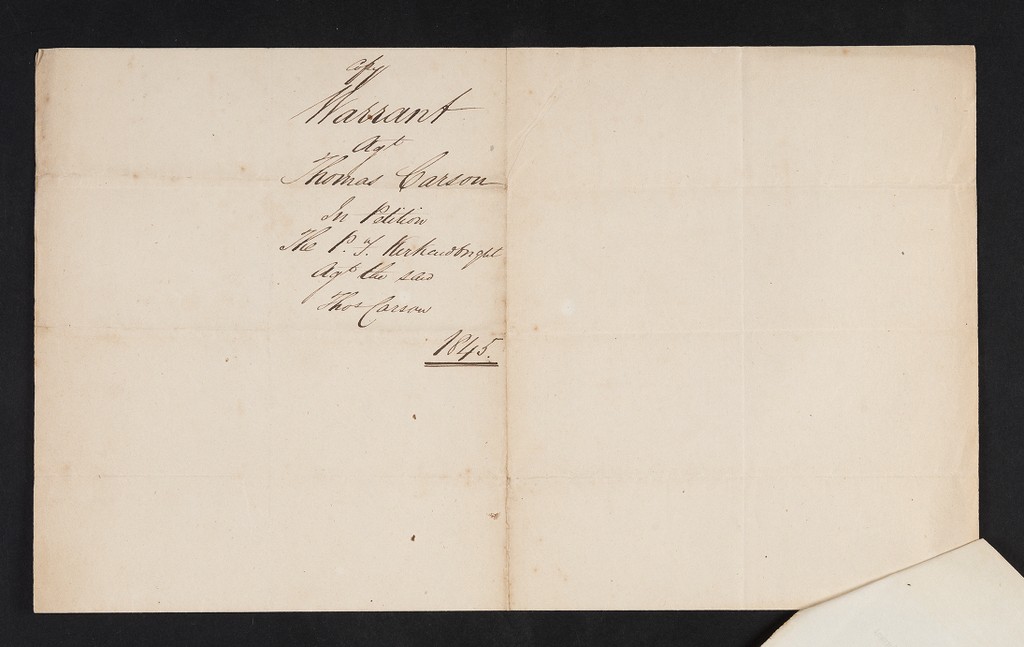 Copy
Warrant
Agt
Thomas Carson
In Petition
The P. F. Kirkcudbright
Agt the said
Thos Carson
1845.